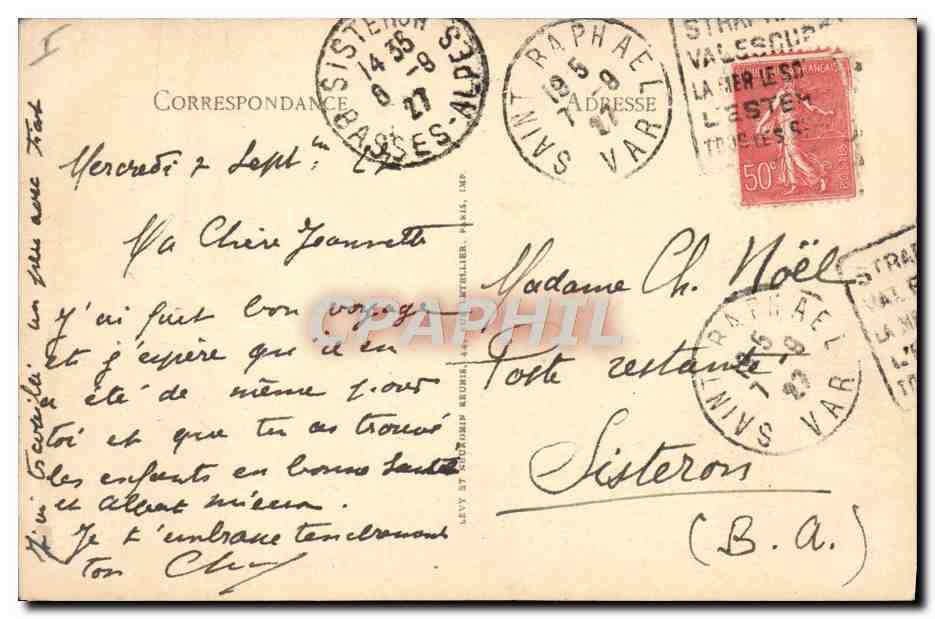 CORRESPONDANCE
ADRESSE
SISTERON
14 35
8 - 9
27
BASSES-ALPES
SAINT RAPHAEL
19 5
7 - 9
27
VAR
VALESCURE
LA MER LE SO
L'ESTE
TOUS LES S
50c
POSTES
Mercredi 7 Sept 27
Ma Chère Jeannette
J'ai fait bon voyage
et j'espère qu'il en
a été de même pour
toi et que tu as trouvé
les enfants en bonne santé
et Albert mieux.
Je t'embrasse tendrement
ton Ch
J'ai travaillé un peu avec
LEVY ET NEURDEIN REUNIS, 44, RUE LETELLIER, PARIS, IMP.
Madame Ch. Noël
Poste restante
Sisteron
(B. A.)
SAINT RAPHAEL
19 5
7 - 9
27
VAR
STRA
VALE
LA ME
L'E
TO
CPAPHIL